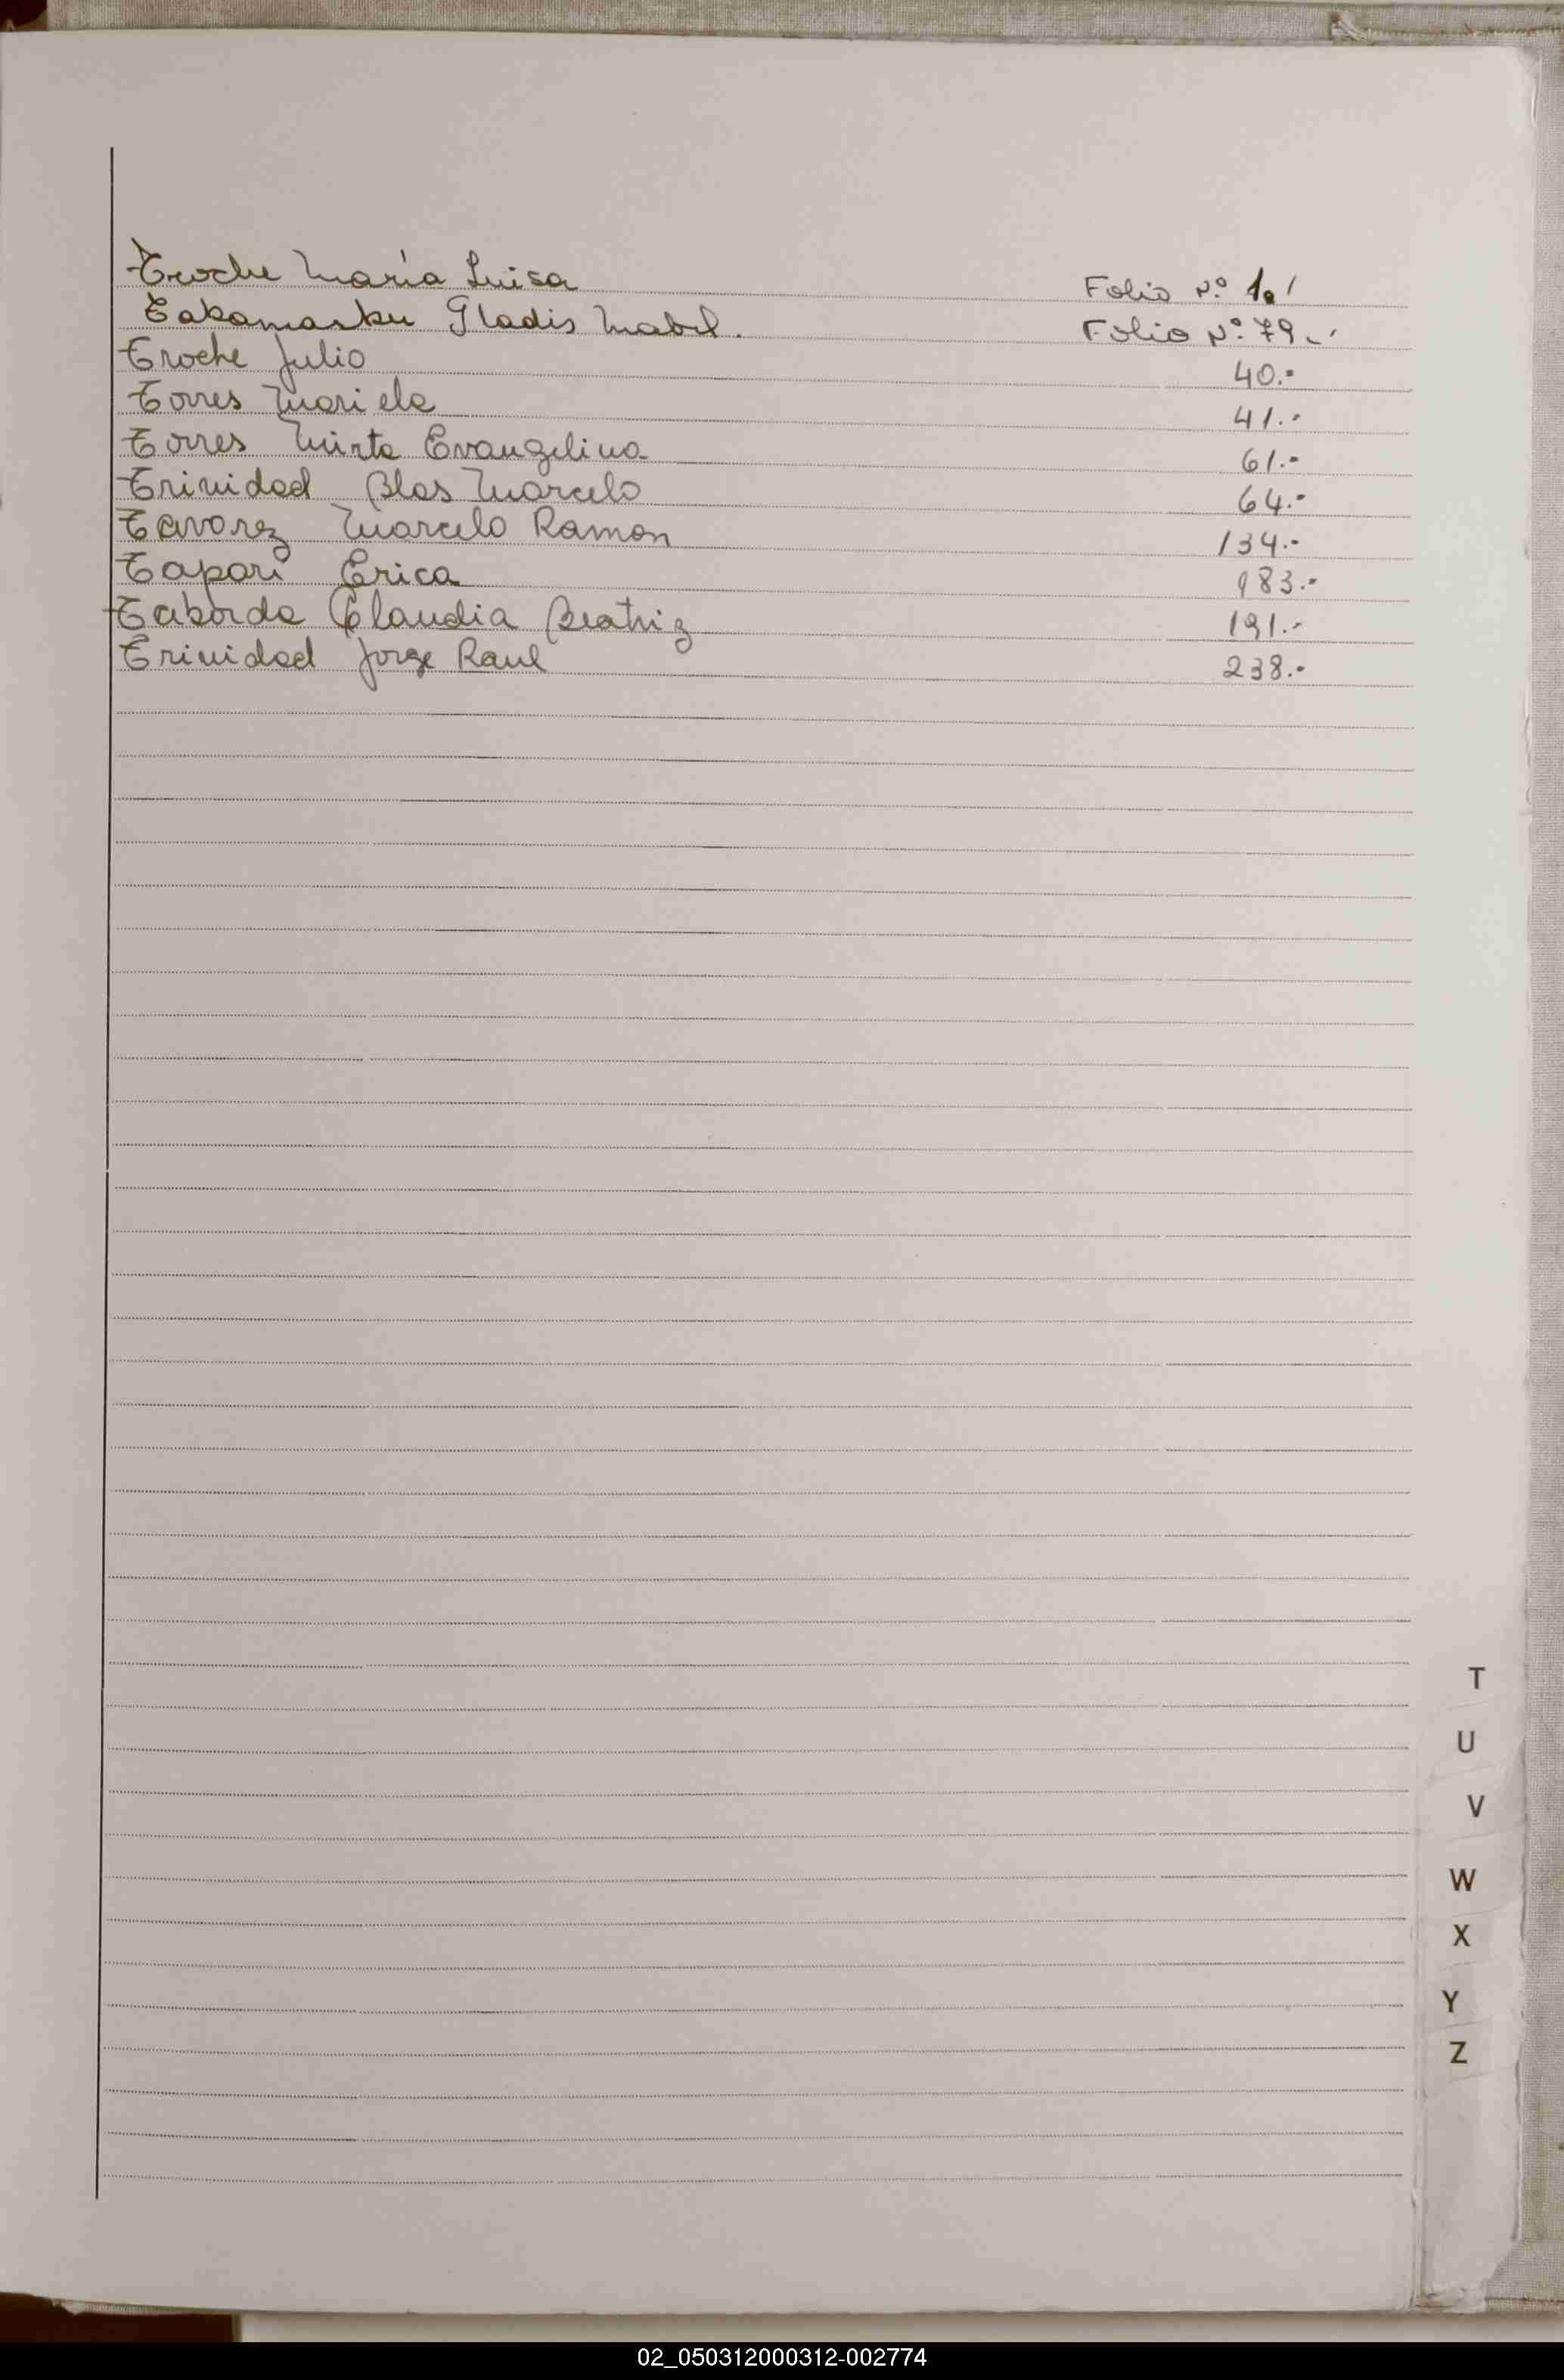 Troche María Luisa Folio Nº 1.
Gladis Mabel. Folio Nº 79.-
Troche Julio 40.-
Torres Mariela 41.-
Torres Mirta Evangelina 61.-
Trinidad Blas Marcelo 64.-
Tavarez Marcelo Ramon 134.-
Tapari Erica 183.-
Taborda Claudia Beatriz 191.-
Trinidad Jorge Raul 238.-
T
U
V
W
X
Y
Z
02_050312000312-002774